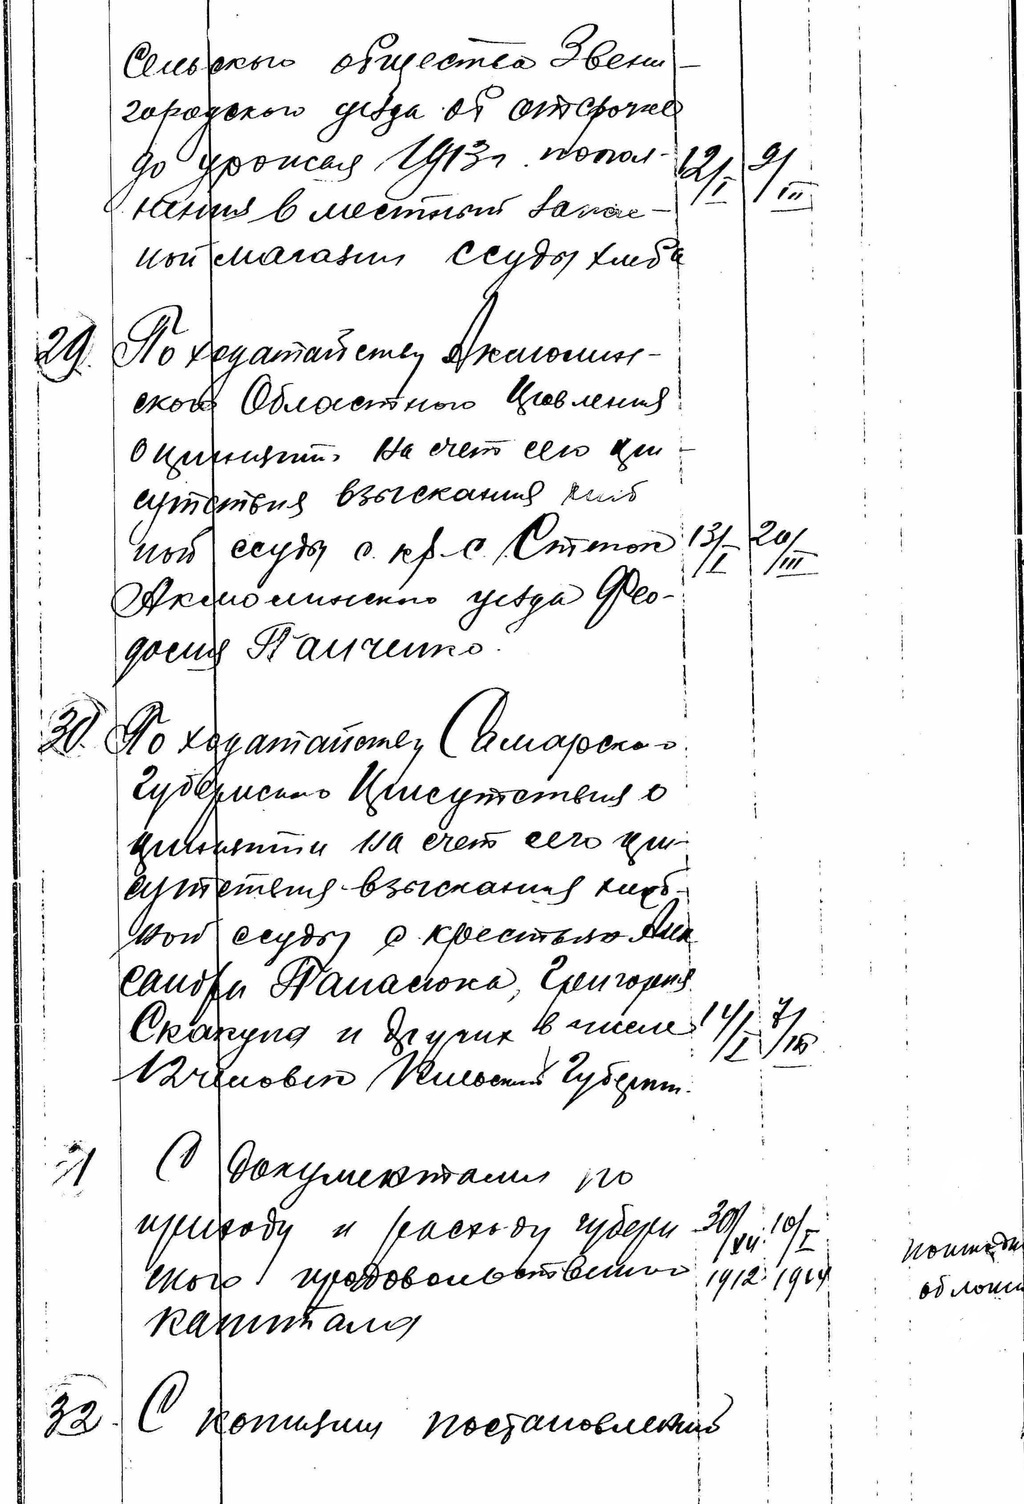 сельского общества Звени-
городского уезда об отсрочке
до урожая 1913 г. попол-
нения в местный запас-
ной магазин ссуды хлеба
12/I 9/III
29. По ходатайству Акмолин-
ского Областного Правления
о принятии на счет сего при-
сутствия взыскания хлеб
ной ссуды с кр. с.
Акмолинского уезда Фео-
досия Панченко.
13/I 20/III
30. По ходатайству Самарского
Губернского Присутствия о
принятии на счет сего при-
сутствия взыскания хлеб-
ной ссуды с крестьян Алек
сандра Панасюка, Григория
Скакуна и других в числе
12 человек Киевской Губернии.
14/I 7/III
31 С документами по
приходу и расходу губерн
ского продовольственного
капитала
30/XII 1912 10/I 1914
32. С копиями постановлений